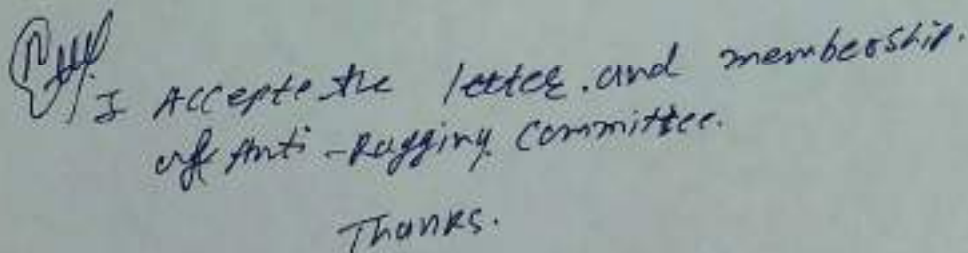 I Accepte the letter. and membership.
of Anti-Ragging Committee.
Thanks.